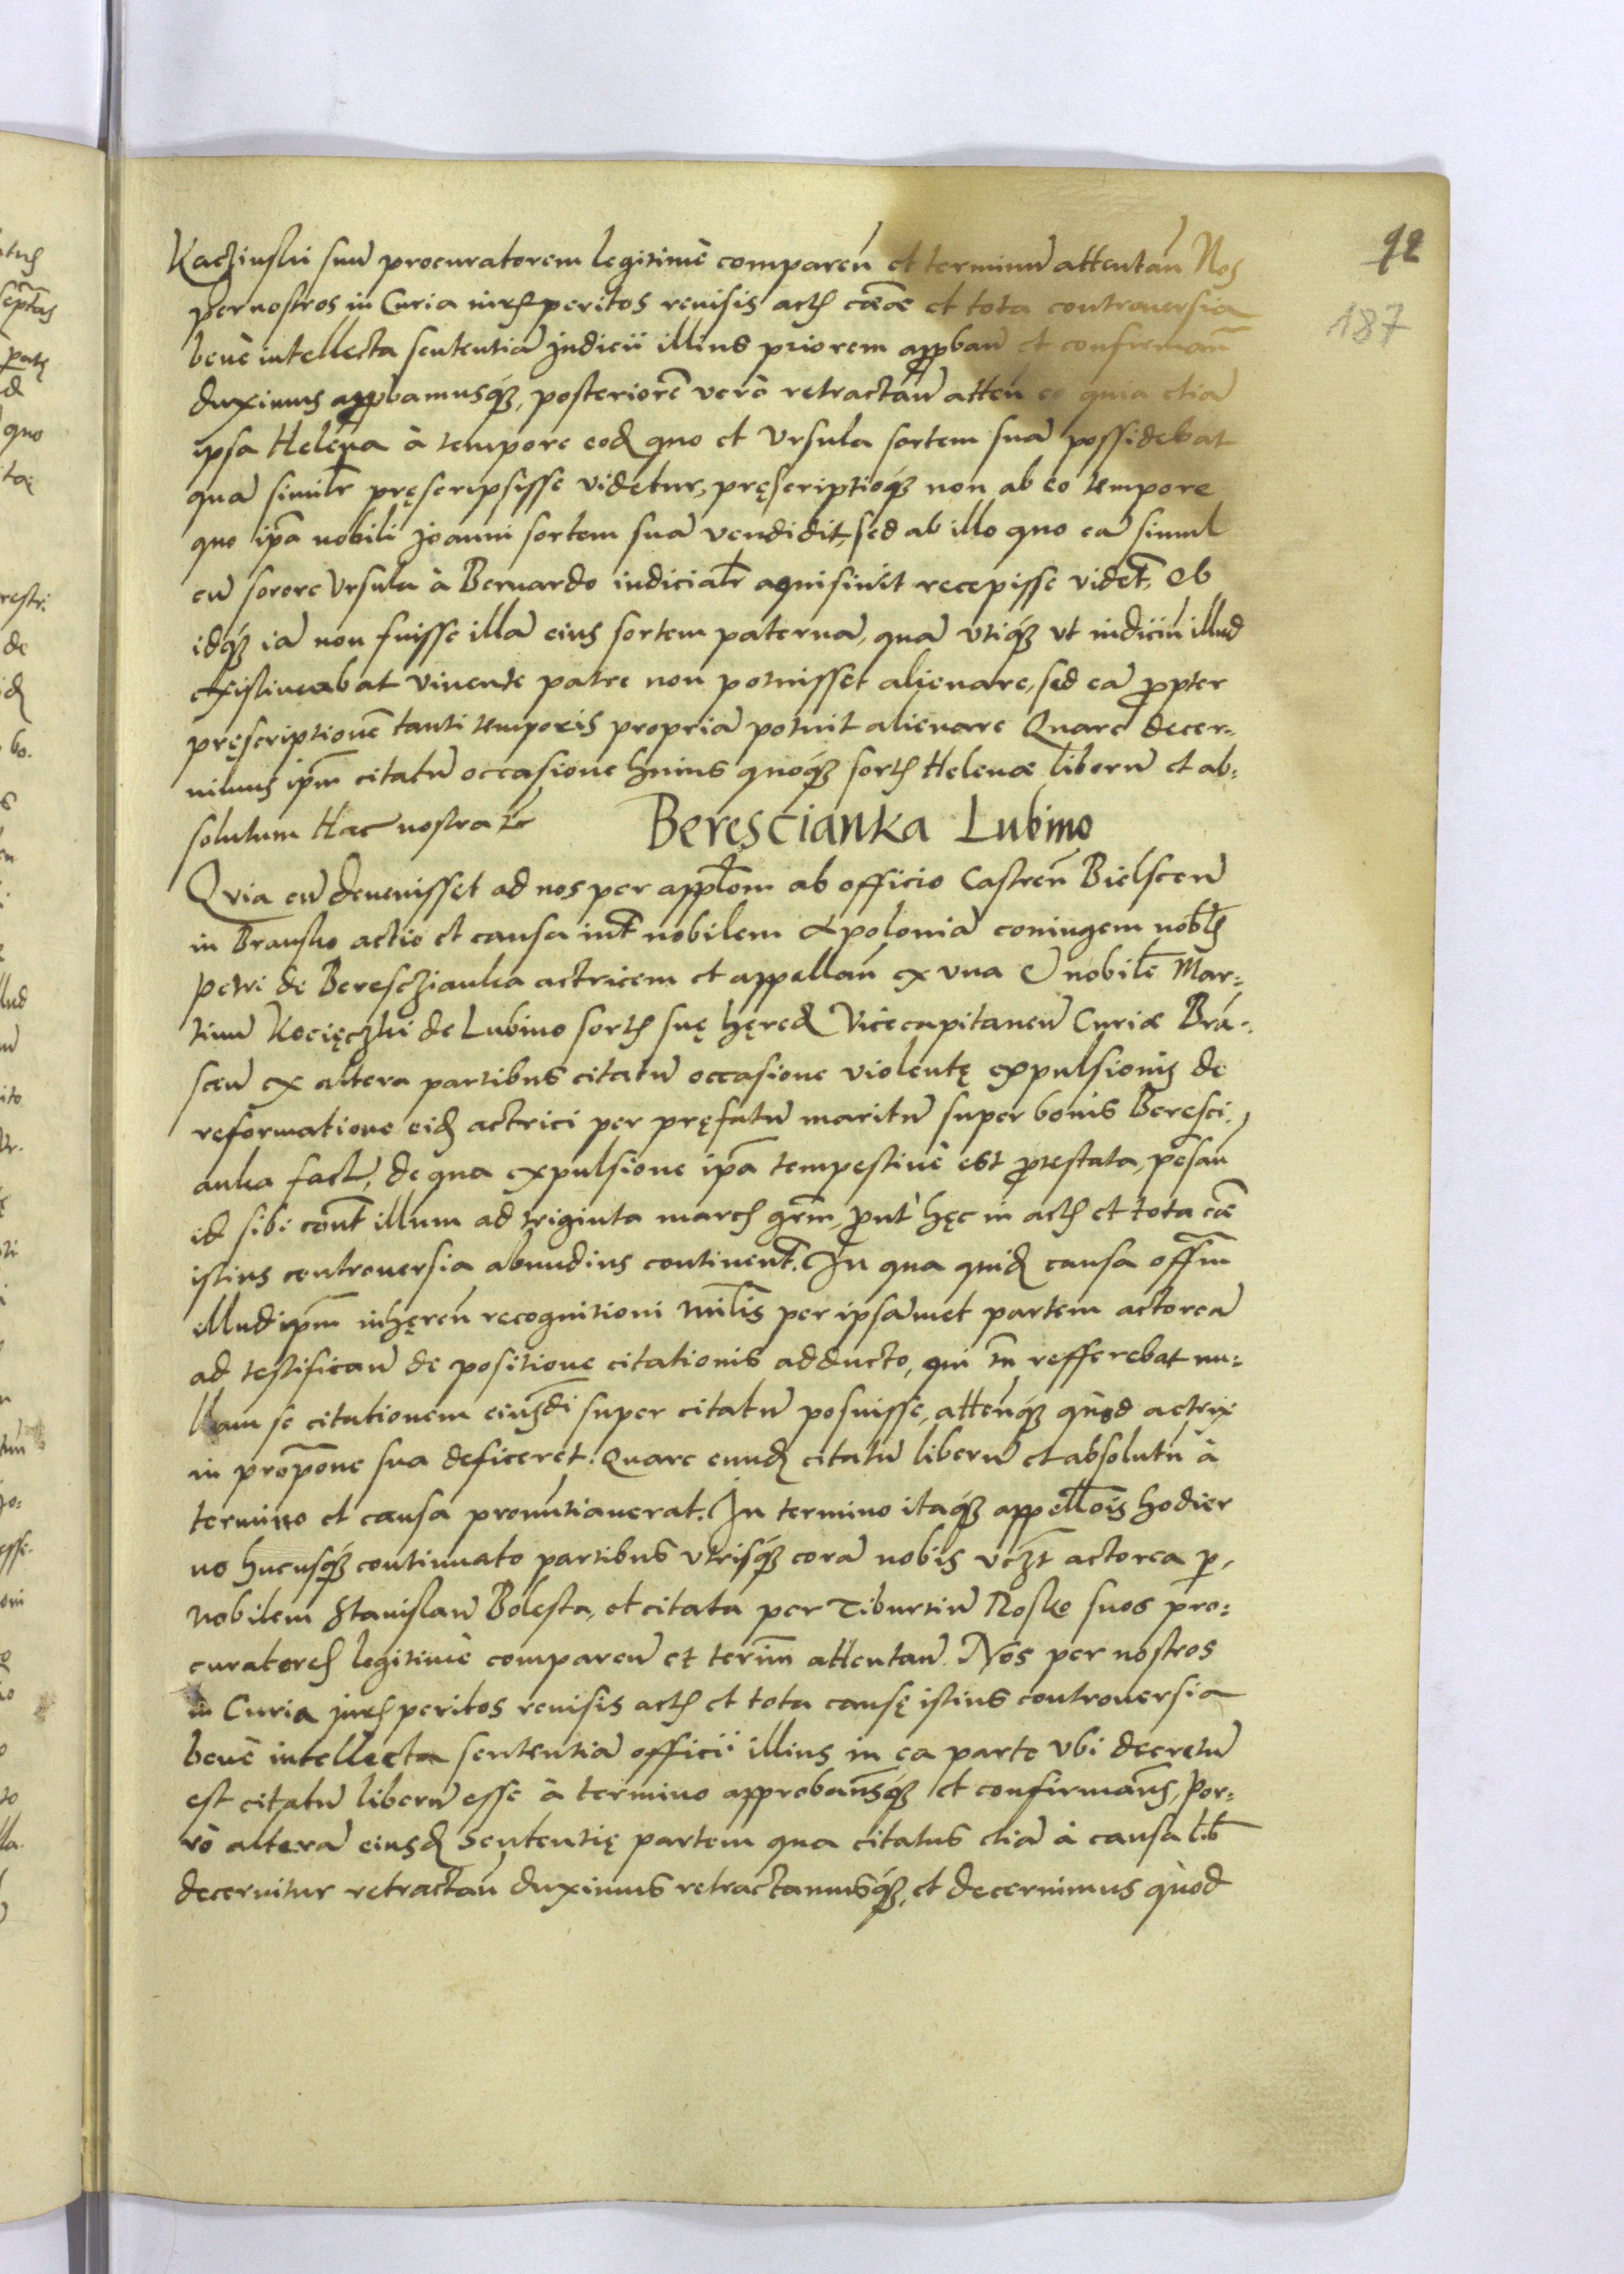 92
187
Kaczinski suũ procuratorem legitimè compareñ et terminũ attentañ Nos
per nostros in Curia iuris peritos reuisis actis cãæ et tota controuersia
benè intellecta sententiã Judicii illius priorem approbañ et confirmañ
duximus approbamusq́ꝫ, posteriorẽ verò retractañ atteñ eo quia etiã
ipsa Helena à tempore eod quo et Vrsula sortem suã possidebat
quã similr pręscripsisse videtur, pręscriptioq́ꝫ non ab eo tempore
quo ipã nobili Joanni sortem suã vendidit, sed ab illo quo eã simul
cũ sorore Vrsula à Bernardo iudicialr aquisiuit recepisse videt, Ob
idq́ꝫ iã non fuisse illã eius sortem paternã, quã vtiq́ꝫ vt iudiciũ illud
existimabat viuente patre non potuisset alienare, sed eã ꝓpter
pręscriptionẽ tanti temporis propriã potuit alienare Quare decer-
nimus ipm citatũ occasione huius quoq́ꝫ sortis Helenæ liberũ et ab-
solutum Hac nostra etc
Berescianka Lubino
Qvia cũ deuenisset ad nos per appłom ab officio Castreñ Bielsceñ
in Bransko actio et causa int nobilem Apoloniã coniugem nobłis
Petri de Beresczianka actricem et appellañ ex vna & nobilẽ Mar-
tinũ Kocięczki de Lubino sortis suę hęred Vicecapitaneũ Curiæ Brã-
sceñ ex altera partibus citatũ occasione violentę expulsionis de
reformatione eid actrici per pręfatũ maritũ super bonis Beresci-
anka fact, de qua expulsione ipã tempestiuè est ꝓtestata, pesañ
id sibi cont illum ad triginta marcis grm, ꝓut hęc in actis et tota cãæ
istius controuersia abundius continent. In qua quid causa offm
illud ipm inhęreñ recognitioni Mins per ipsãmet partem actoreã
ad testificañ de positione citationis adducto, qui tñ refferebat nu-
llam se citationem eiusdi super citatũ posuisse, attenq́ꝫ quòd actrix
in propone sua deficeret. Quare eund citatũ liberũ et absolutũ à
termino et causa pronũtiauerat. In termino itaq́ꝫ appellois hodier
no hucusq́ꝫ continuato partibus vtrisq́ꝫ corã nobis vczt actorea p
Nobilem Stanislaũ Bolesta, et citata per Tiburtiũ Rosko suos pro-
curatores legitimè compareñ et terim attentañ. Nos per nostros
in Curia juris peritos reuisis actis et tota causę istius controuersia
benè intellecta sententiã officii illius in ea parte vbi decretũ
est citatũ liberũ esse à termino approbamusq́ꝫ et confirmamus, Por-
rò alterã eiusd sententię partem qua citatus etiã à causa lib
decernitur retractañ duximus retractamusq́ꝫ, et decernimus quòd